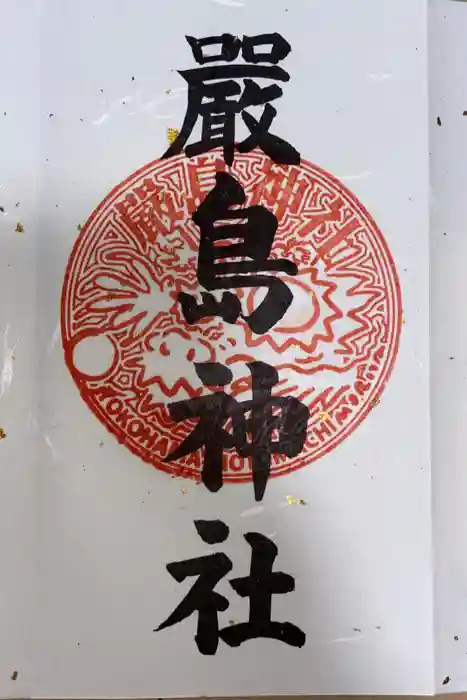 嚴島神社
厳島神社
YOKOHAMA MOTOMACHI